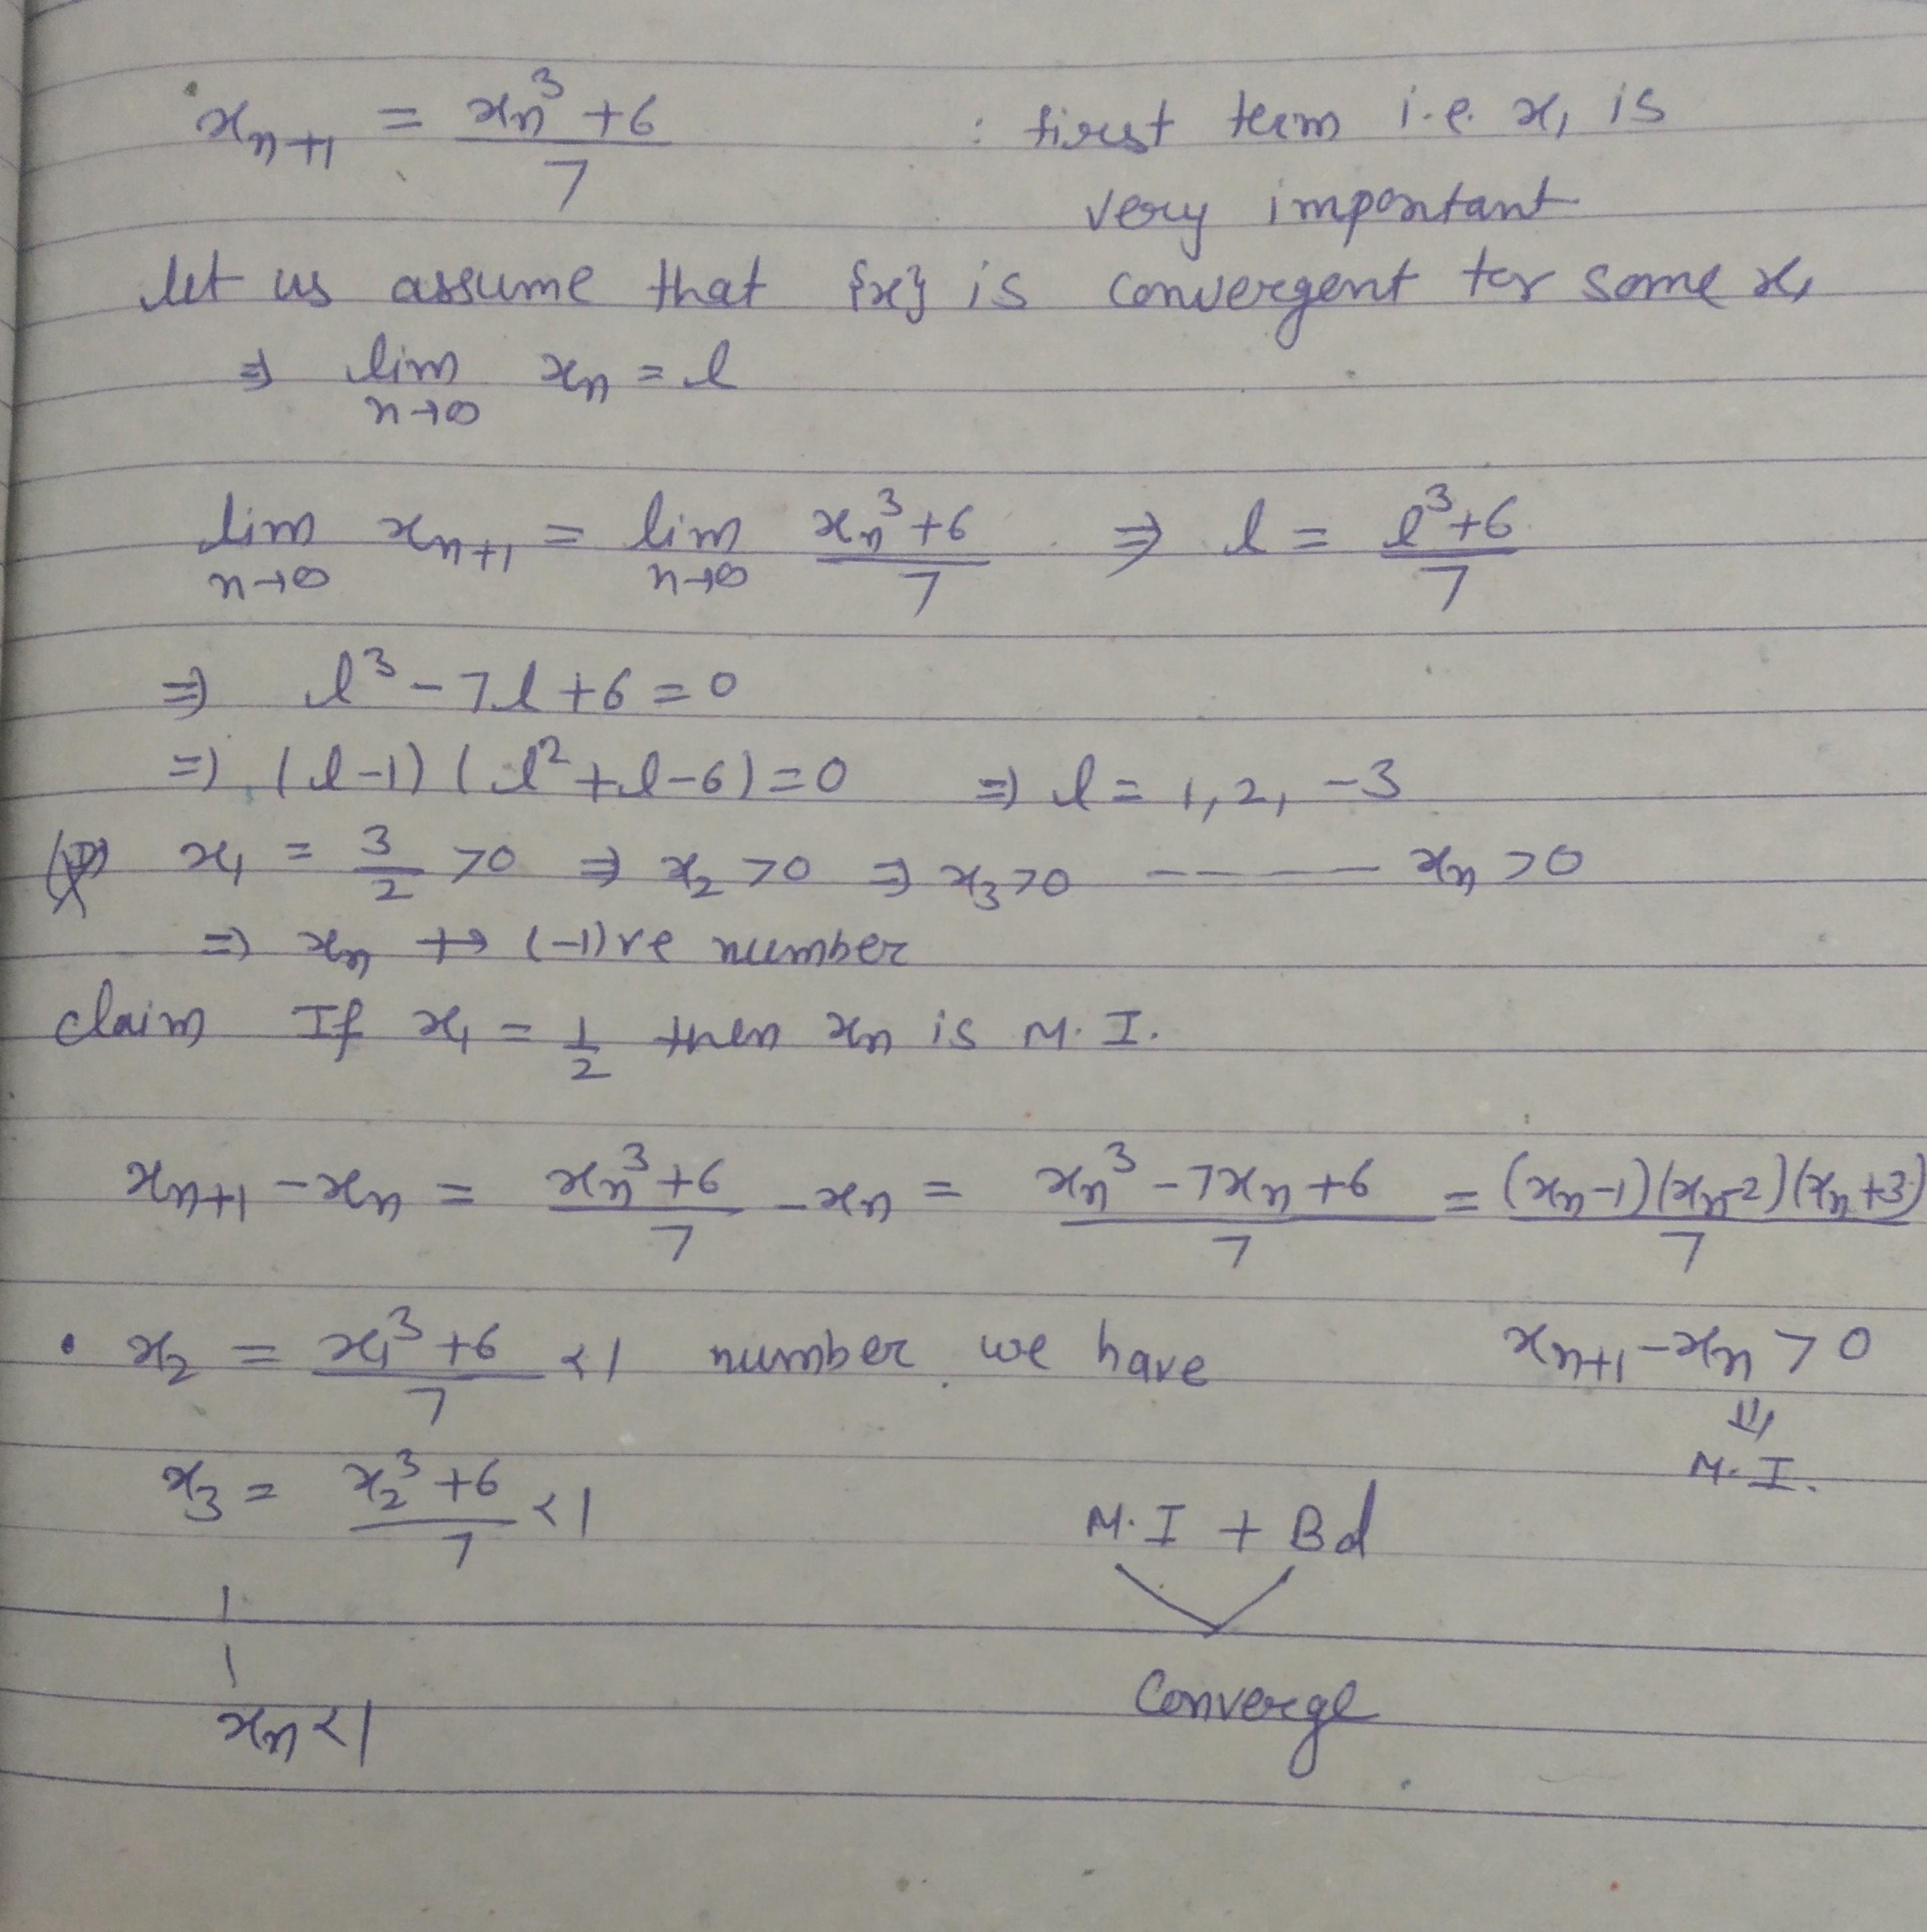 x_{n+1} = \frac{x_n^3 + 6}{7} : first term i.e. x_1 is
very important
let us assume that {x} is convergent for some x_1
⇒ \lim_{n→∞} x_n = l
\lim_{n→∞} x_{n+1} = \lim_{n→∞} \frac{x_n^3 + 6}{7} ⇒ l = \frac{l^3 + 6}{7}
⇒ l^3 - 7l + 6 = 0
⇒ (l-1)(l^2 + l - 6) = 0 ⇒ l = 1, 2, -3
x_1 = \frac{3}{2} > 0 ⇒ x_2 > 0 ⇒ x_3 > 0 ----- x_n > 0
⇒ x_n ↛ (-1)ve number
claim If x_1 = \frac{1}{2} then x_n is M.I.
x_{n+1} - x_n = \frac{x_n^3 + 6}{7} - x_n = \frac{x_n^3 - 7x_n + 6}{7} = \frac{(x_n - 1)(x_n - 2)(x_n + 3)}{7}
• x_2 = \frac{x_1^3 + 6}{7} < 1 number we have x_{n+1} - x_n > 0
⇓
M.I.
x_3 = \frac{x_2^3 + 6}{7} < 1 M.I + Bd
|
|
x_n < 1 Converge